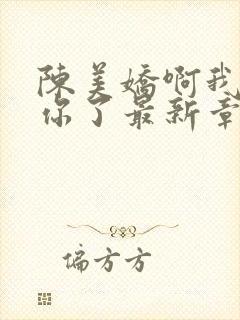 陳美嬌啊我
你了最新章
偏方方